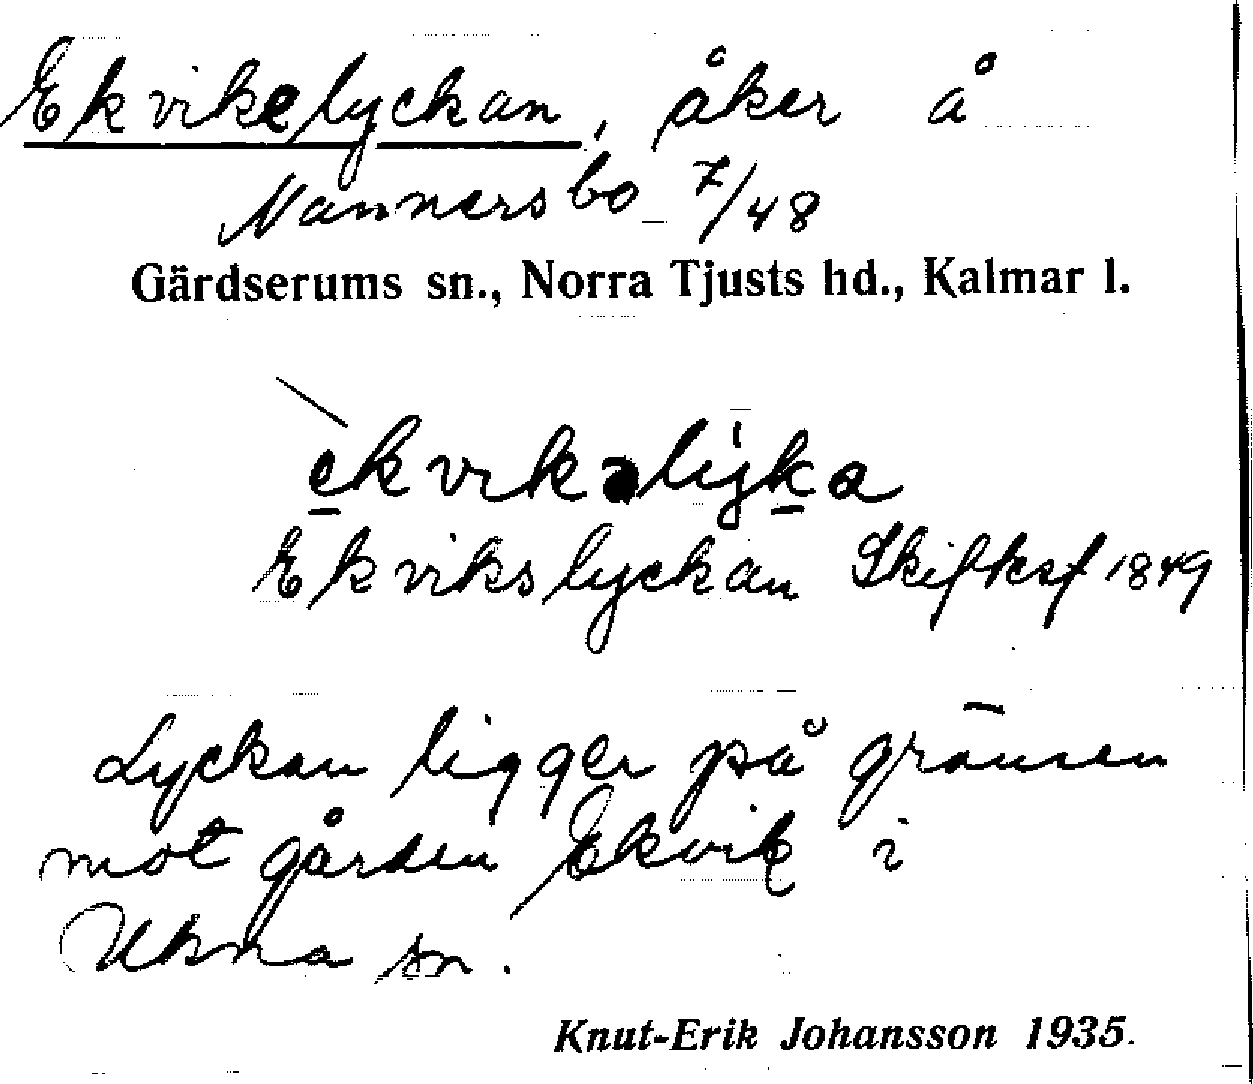 Ekvikelyckan, åker å
Mannersbo 7/48
Gärdserums sn., Norra Tjusts hd., Kalmar l.
ekvikəlyka
Ekvikslyckan Skifksf 1849
Lyckan ligger på gränsen
mot gården Ekvik i
Ukna sn.
Knut-Erik Johansson 1935.